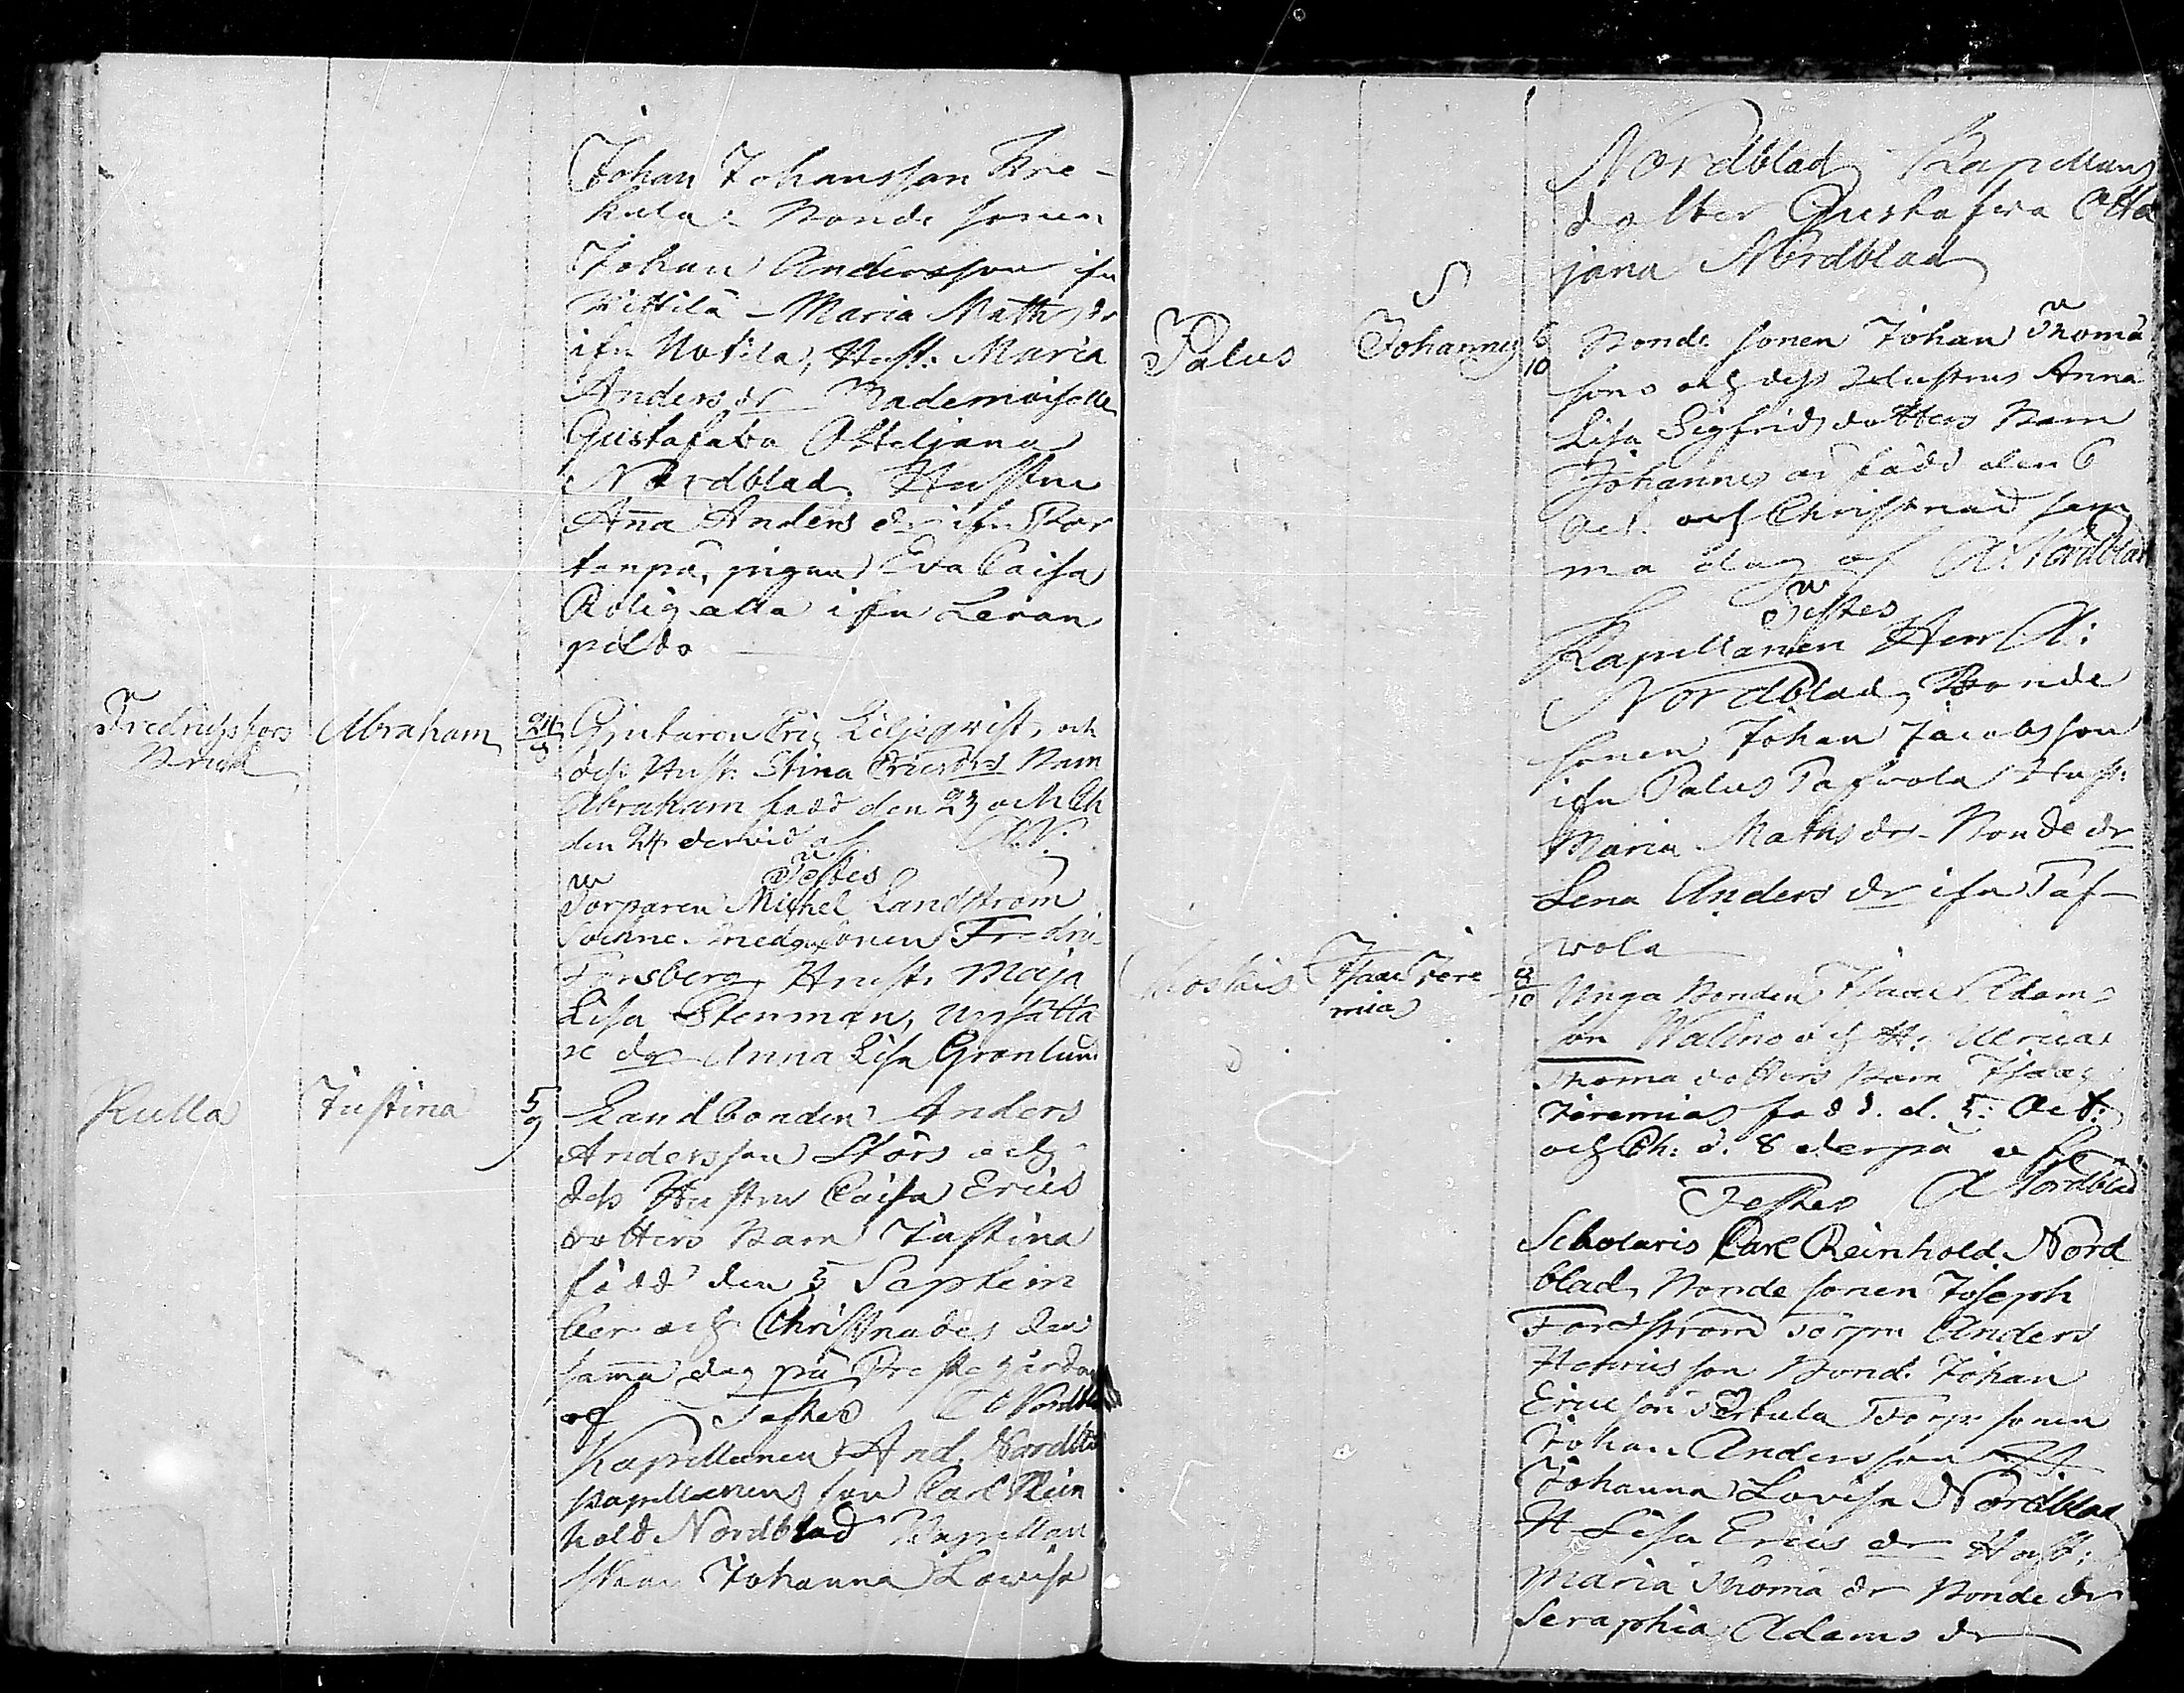 Johan Johansson Kre-
kula. Bonde sonen
Johan Andersson ifn
Kittilä - Maria Math dr
ifn Uotila, Hust: Maria
Anders dr Mademoiselle
Gustafva Otteljana
Nordblad, Hustru
Anna Anders dr ifn Por
tanpä, pigan Eva Caisa
Rolig alla ifn Levan
pildo
Fredrigsfors Bruk
Abraham
24/9
Gjutaren Eric Liljeqvist, och
dess Hustr: Stina Ericsdrs Barn
Abraham född den 23 och Ch
den 24 dervid af A.N.
Testes
Torparen Michel Landström
Smedgesonen Fredric
Forsberg, Hust: Maja
Lisa Stenman,
dr Anna Lisa Grönlund
Kulla
Justina
5/9
Landbonden Anders
Andersson Störs och
dess Hustru Caisa Erics
dotters Barn Justina
född den 5 Septem
ber och Christnades den
samma dag på Prestegården
af Testes A Nordblad
Kapellanen And. Nordblad
Kapellanens son Carl Rein
hold Nordblad Kapellan
skan Johanna Lovisa
Nordblad Kapellans
dotter Gustafva Otte
jana Nordblad
Palus
Johannes
6/10
Bonde sonen Johan Thoma
sons och dess Hustrus Anna
Lisa Sigfrids dotters Barn
Johannes är född den 6
Oct. och Christnad sam
ma dag af A: Nordblad
Testes
Kapellanen Herr A:
Nordblad, Bonde
sonen Johan Jacobsson
ifn Palus Tafwola Hust:
Maria Maths dr - Bonde dr
Lena Anders dr ifn Taf-
wola
Koskis
Isaac Jere
mias
8/10
Unga Bonden Isaac Adam
son Wallins och H: Ulricas
Thoma dotters Barn Isaac
Jeremias född. d. 5: Oct:
och Ch: d. 8 derpå af
Testes A Nordblad
Scholaris Carl Reinhold Nord
blad, Bonde sonen Joseph
Fordström Torpn Anders
Henricsson Bond. Johan
Ericson Torp. sonen
Johan Andersson
Johanna Lovisa Nordblad
H Lisa Erics dr Hust:
Maria Thoma dr Bonde dr
Seraphia Adams dr